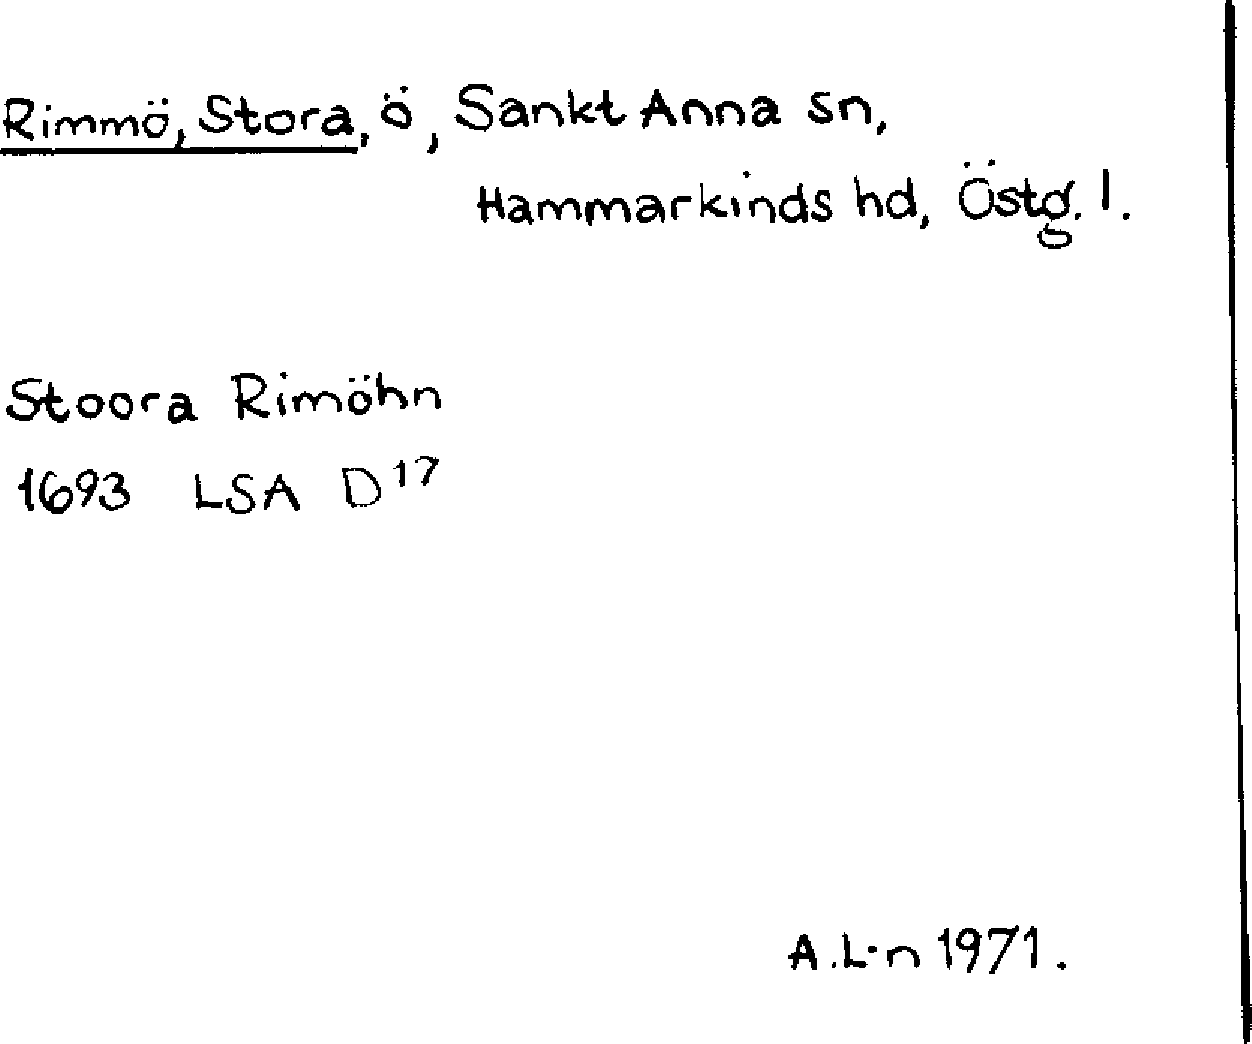 Rimmö, Stora, ö, Sankt Anna sn,
Hammarkinds hd, Östg. l.
Stoora Rimöhn
1693 LSA D17
A.L-n 1971.